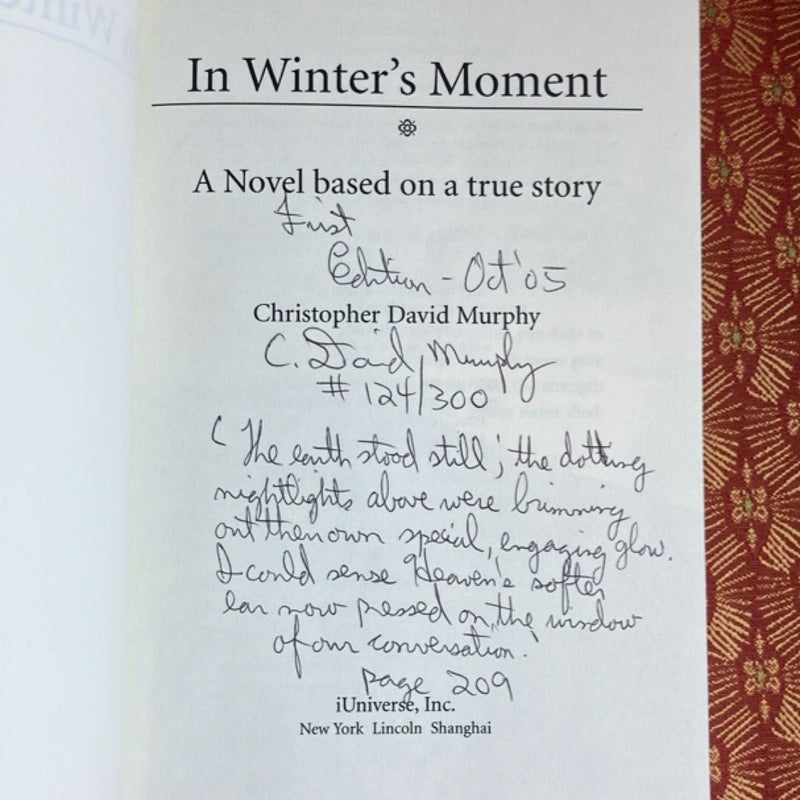 In Winter's Moment
A Novel based on a true story
First
Edition - Oct '05
Christopher David Murphy
C. David Murphy
# 124/300
"The earth stood still; the dotting
nightlights above were brimming
out their own special, engaging glow.
I could sense Heaven's softer
ear now pressed on the window
of our conversation."
page 209
iUniverse, Inc.
New York Lincoln Shanghai